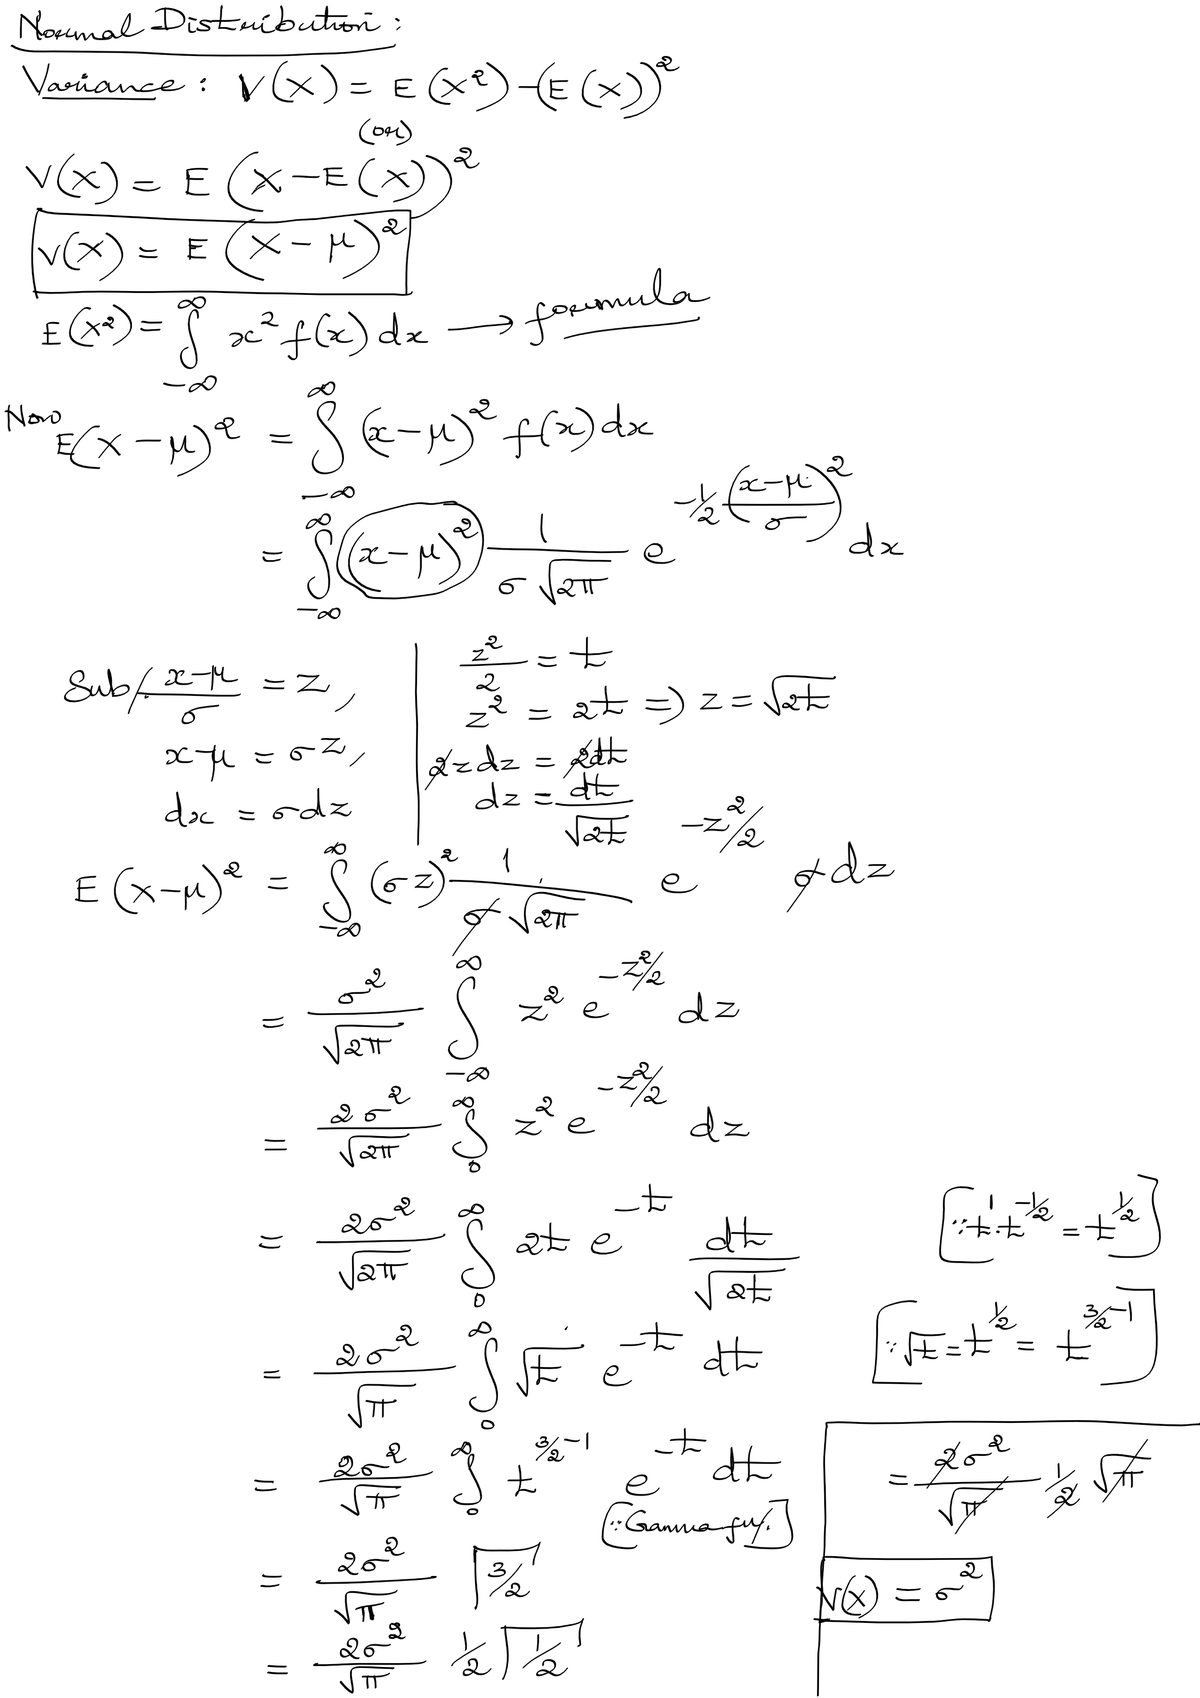 Normal Distribution:
Variance: V(X) = E(X²) - (E(X))²
(or)
V(X) = E(X - E(X))²
V(X) = E(X - μ)²
E(X²) = ∫_{-∞}^{∞} x² f(x) dx → formula
Now E(X - μ)² = ∫_{-∞}^{∞} (x - μ)² f(x) dx
= ∫_{-∞}^{∞} (x - μ)² 1/(σ√2π) e^{-1/2 ((x-μ)/σ)²} dx
Sub/. (x-μ)/σ = z,
x-μ = σz,
dx = σdz
z²/2 = t
z² = 2t => z = √2t
2zdz = 2dt
dz = dt/√2t
E(x-μ)² = ∫_{-∞}^{∞} (σz)² 1/(σ√2π) e^{-z²/2} σdz
= σ²/√2π ∫_{-∞}^{∞} z² e^{-z²/2} dz
= 2σ²/√2π ∫_{0}^{∞} z² e^{-z²/2} dz
= 2σ²/√2π ∫_{0}^{∞} 2t e^{-t} dt/√2t
[∵ t¹·t^{-1/2} = t^{1/2}]
= 2σ²/√π ∫_{0}^{∞} √t e^{-t} dt
[∵ √t = t^{1/2} = t^{3/2-1}]
= 2σ²/√π ∫_{0}^{∞} t^{3/2-1} e^{-t} dt
[∵ Gamma fn/.]
= 2σ²/√π Γ3/2
= 2σ²/√π 1/2 Γ1/2
= 2σ²/√π 1/2 √π
V(X) = σ²